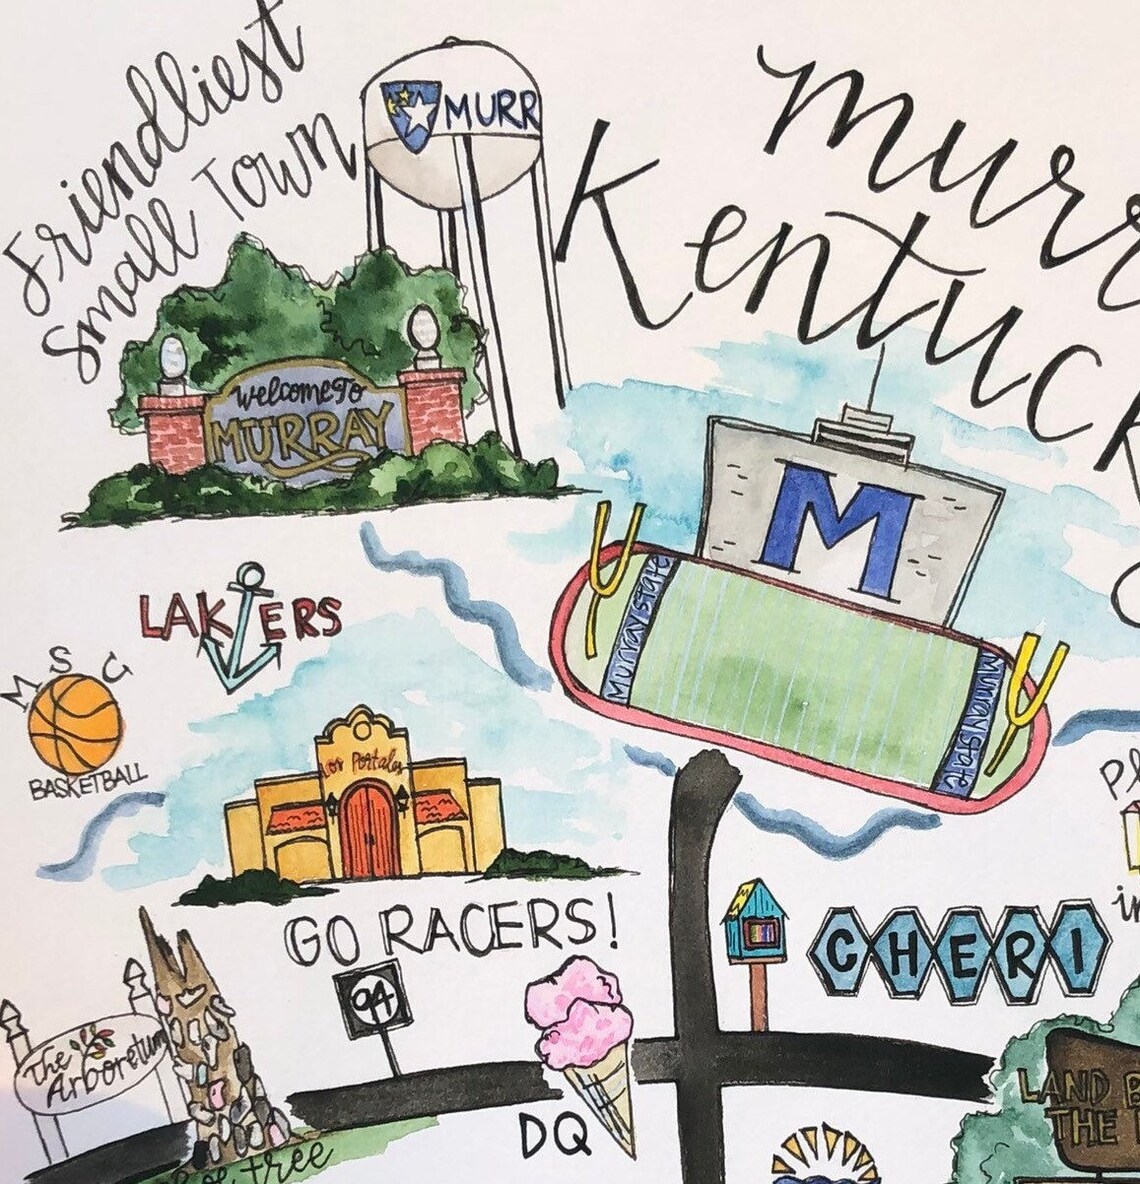 Friendliest
Small Town
MURR
Murr
Kentuck
Welcome To
MURRAY
M
Murray State
Murray State
LAKERS
M S G
BASKETBALL
Los Portales
GO RACERS!
94
The
Arboretum
DQ
CHERI
LAND B
THE
tree